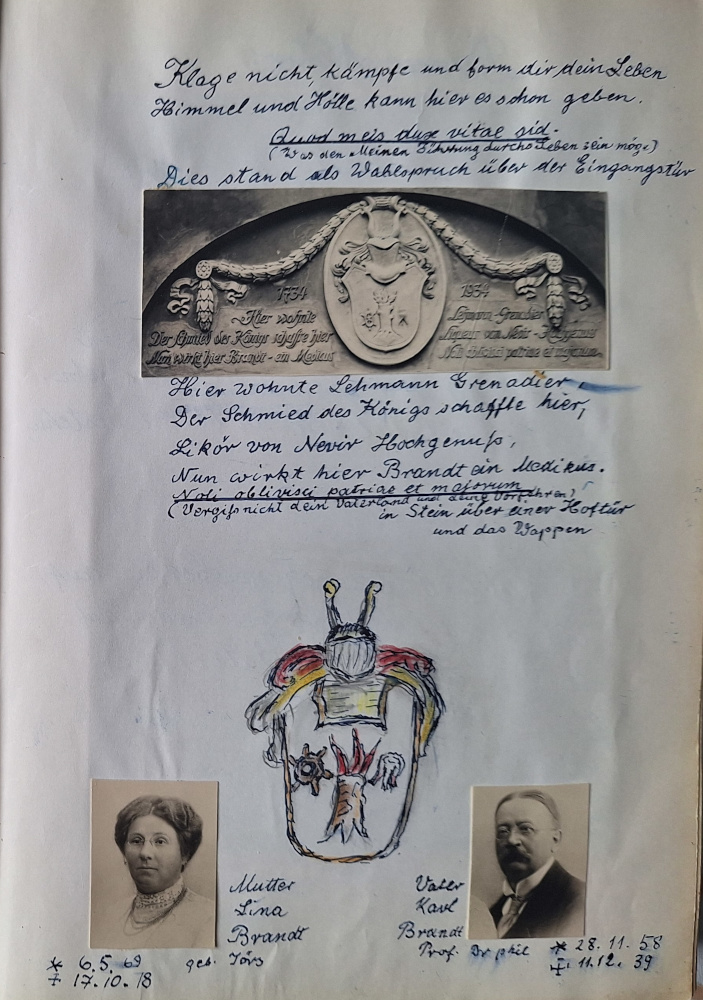 Klage nicht, kämpfe und form dir dein Leben
Himmel und Hölle kann hier es schon geben.
Quod meis dux vitae sid.
(Was den Meinen Führung durchs Leben sein möge)
Dies stand als Wahlspruch über der Eingangstür
1734
1934
Hier wohnte
Lehmann-Grenadier
Der Schmied des Königs schaffte hier
Nun wirkt hier Brandt - ein Medicus
Noli oblivisci patriae et majorum
Hier wohnte Lehmann Grenadier,
Der Schmied des Königs schaffte hier,
Likör von Nevir Hochgenuß,
Nun wirkt hier Brandt ein Medikus.
Noli oblivisci patriae et majorum
(Vergiß nicht dein Vaterland und deine Vorfahren)
in Stein über einer Hoftür
und das Wappen
Mutter
Lina
Brandt
geb. Törs
* 6.5. 69
+ 17.10.18
Vater
Karl
Brandt
Prof. Dr phil
* 28.11.58
+ 11.12.39